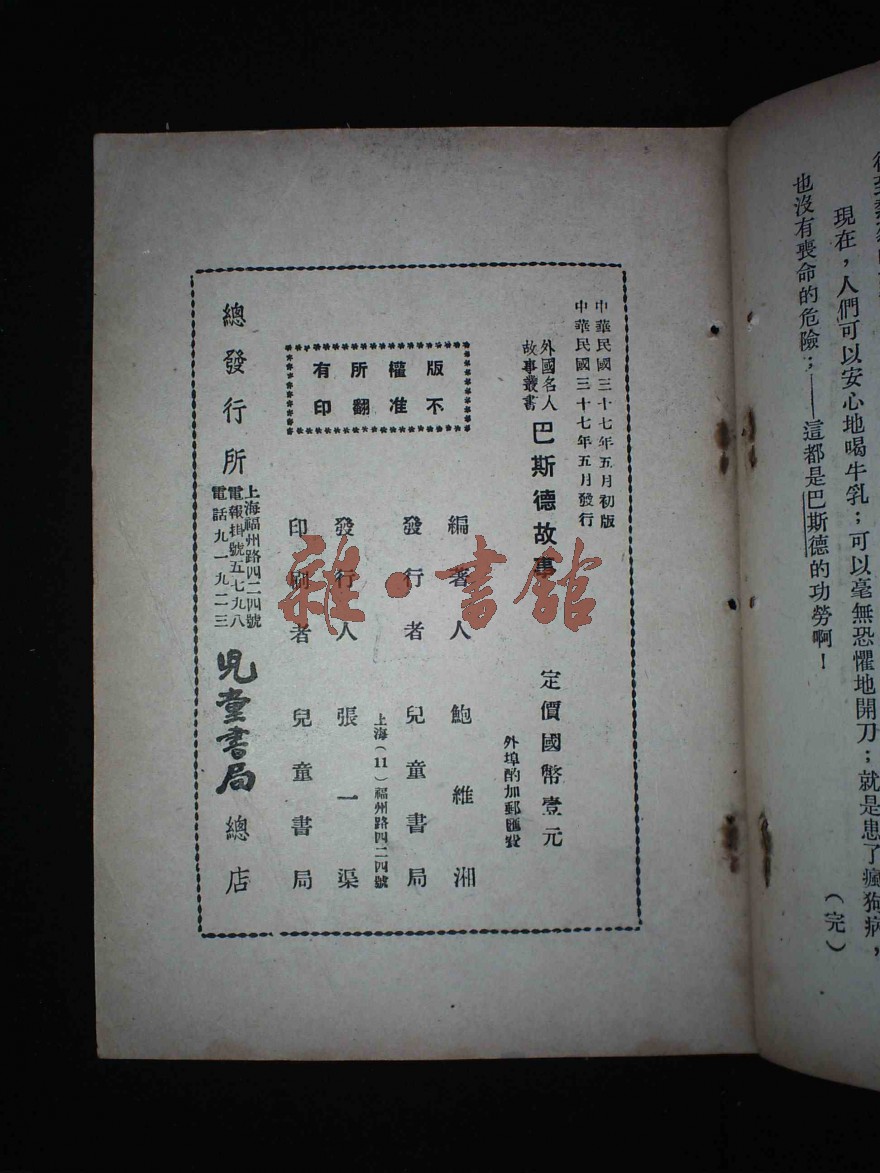 現在，人們可以安心地喝牛乳；可以毫無恐懼地開刀；就是患了瘋狗病，
也沒有喪命的危險；——這都是巴斯德的功勞啊！
（完）
中華民國三十七年五月初版
中華民國三十七年五月發行
外國名人
故事叢書
巴斯德故事
定價國幣壹元
外埠酌加郵匯費
編著人 鮑維湘
發行者 兒童書局
上海（11）福州路四二四號
發行人 張一渠
印刷者 兒童書局
版權所有
不准翻印
總發行所
上海福州路四二四號
電報掛號五七九八
電話九一九二三
兒童書局總店
雜·書館